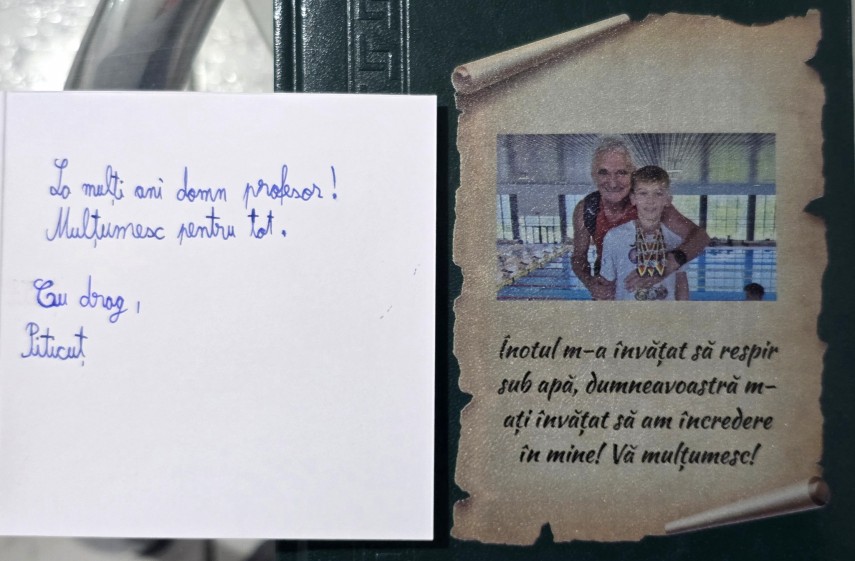 La mulți ani domn profesor!
Mulțumesc pentru tot.
Cu drag,
Piticuț
Înotul m-a învățat să respir
sub apă, dumneavoastră m-
ați învățat să am încredere
în mine! Vă mulțumesc!